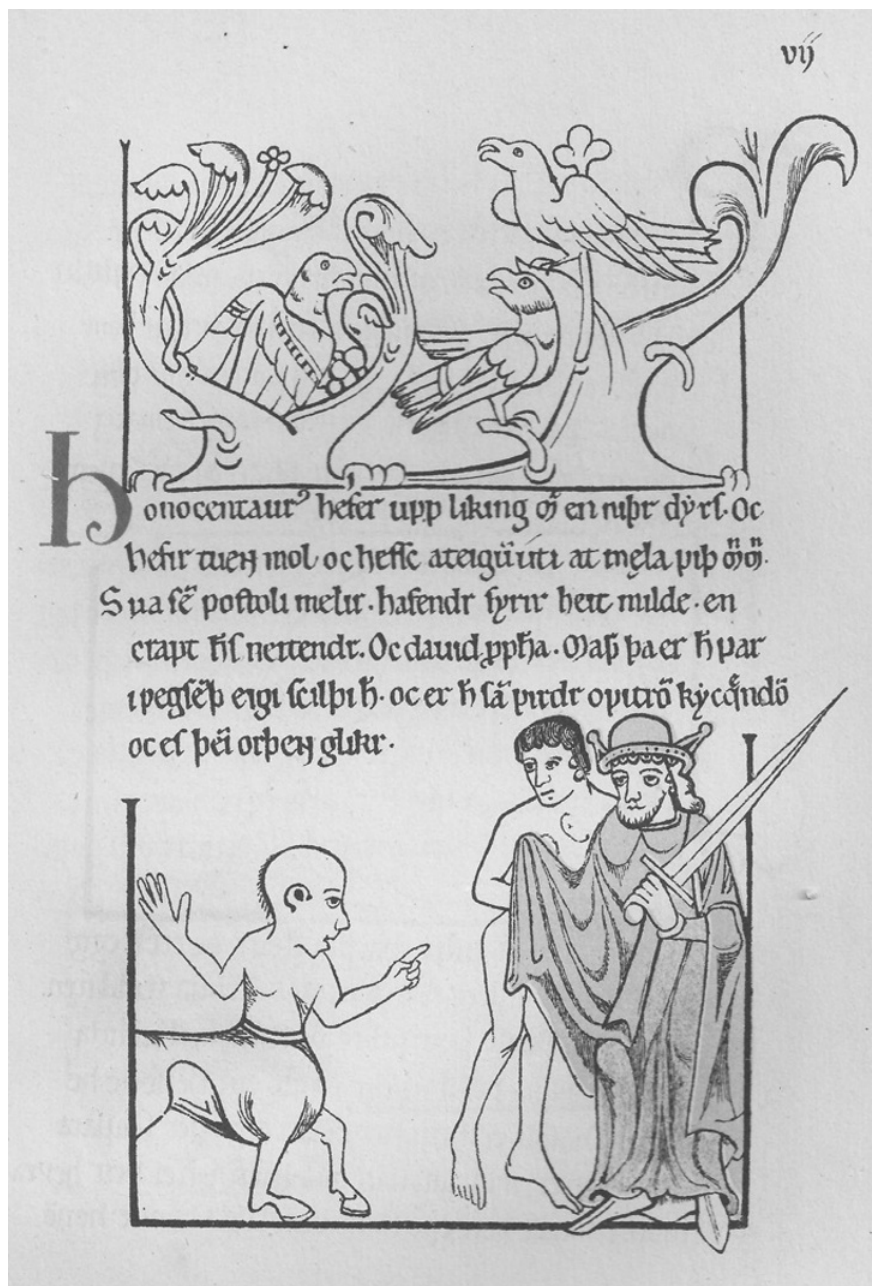 vij
honocentaurꝰ hefer upp liking m̃ en niþr dẏrſ· Oc
hefir tueɴ mol· oc heſſc ateigu̇iti at męla ꝩiþ m̃m̃·
Sua ſē poſtoli melir· hafendr fyrir heit milde· en
crapt h̄ſ neitendr· Oc dauid ꝓph̄a· Maþ þa er h̄ ꝩar
ı ꝩegſēþ eıgı ſcılþi h̄· oc er h̄ ſā ꝩirdr oꝩitrō kẏcqͤndō
oc eſ þeī orþeɴ glikr·